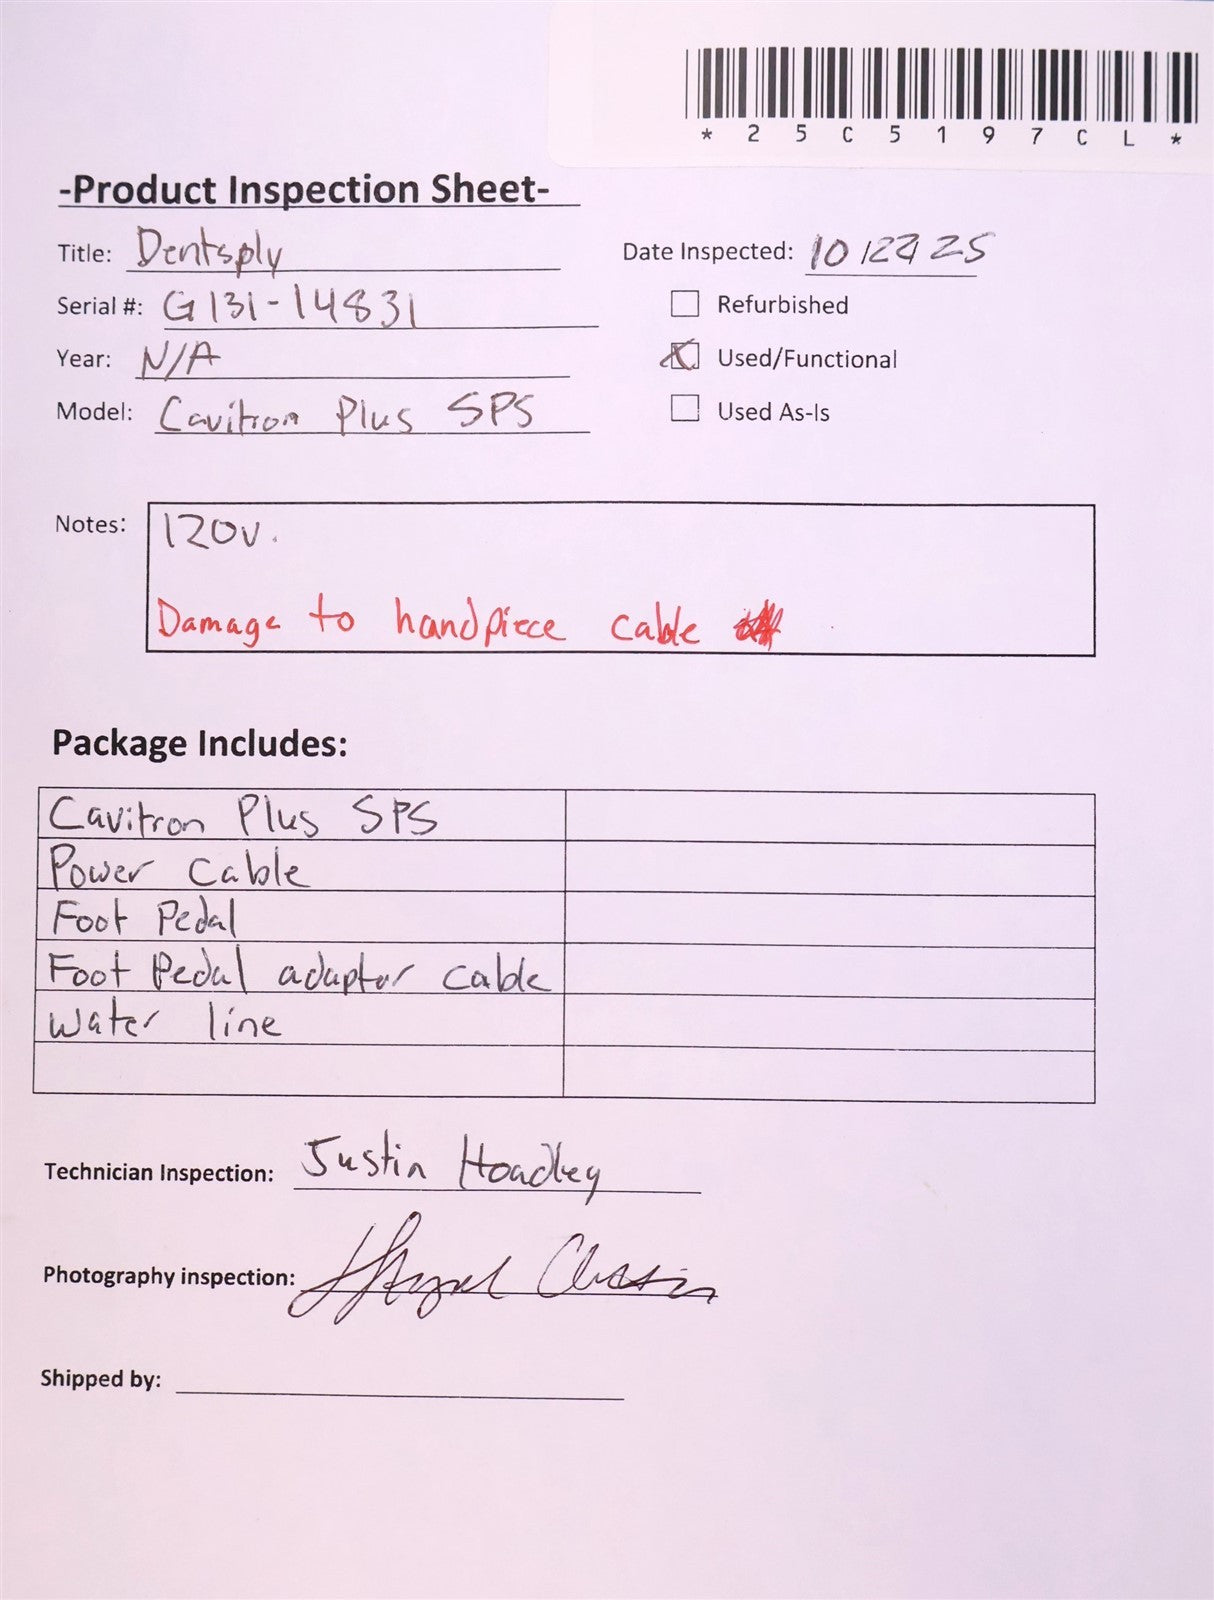 * 2 5 C 5 1 9 7 C L *
-Product Inspection Sheet-
Title: Dentsply
Date Inspected: 10 / 25
Serial #: G131-14831
Refurbished
Year: N/A
Used/Functional
Model: Cavitron Plus SPS
Used As-Is
Notes: 120v.
Damage to handpiece cable
Package Includes:
Cavitron Plus SPS
Power Cable
Foot Pedal
Foot Pedal adapter cable
Water line
Technician Inspection: Justin Hoadley
Photography inspection:
Shipped by: